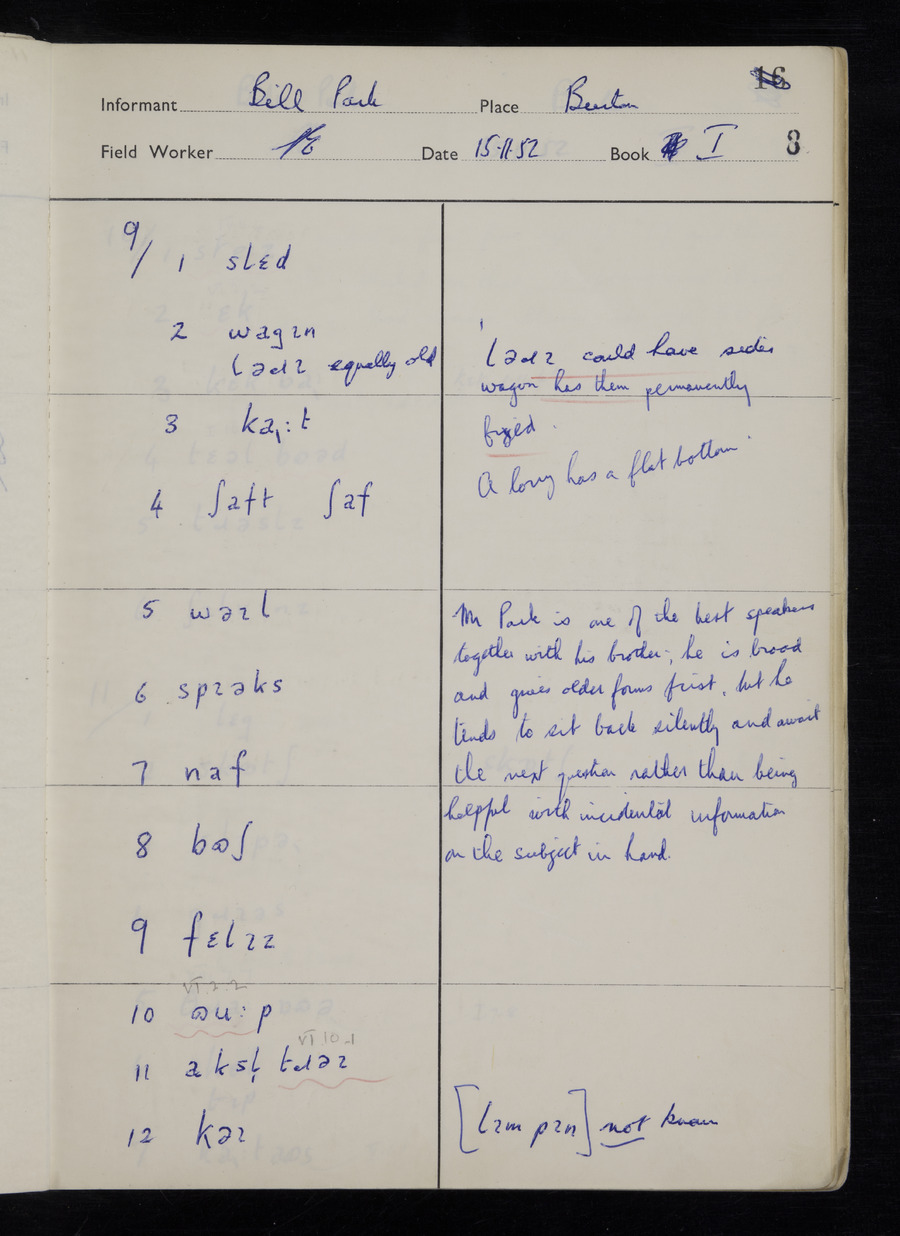 16
Informant Bill Park Place Burton
Field Worker Date 15·11·52 Book I 8
9/ 1 slɛd
2 wagɪn
equally old
3 ka̩:t
4 ʃaft ʃaf
5 wəɪl
6 spɪəks
7 naf
8 bɷʃ
9 fɛlɪz
VI 2.2
10 ɷu:p
VI 10.1
11 akst̩
12 kəɪ
could have sides
wagon has them permanently
fixed.
A lorry has a flat bottom.
Mr Park is one of the best speakers
together with his brother; he is broad
and gives older forms first, but he
tends to sit back silently and await
the next question rather than being
helpful with incidental information
on the subject in hand.
[lɪmpɪn] not known